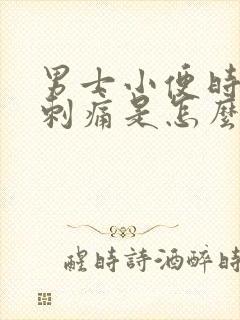 男士小便时
刺痛是怎麼
醒時詩酒醉時